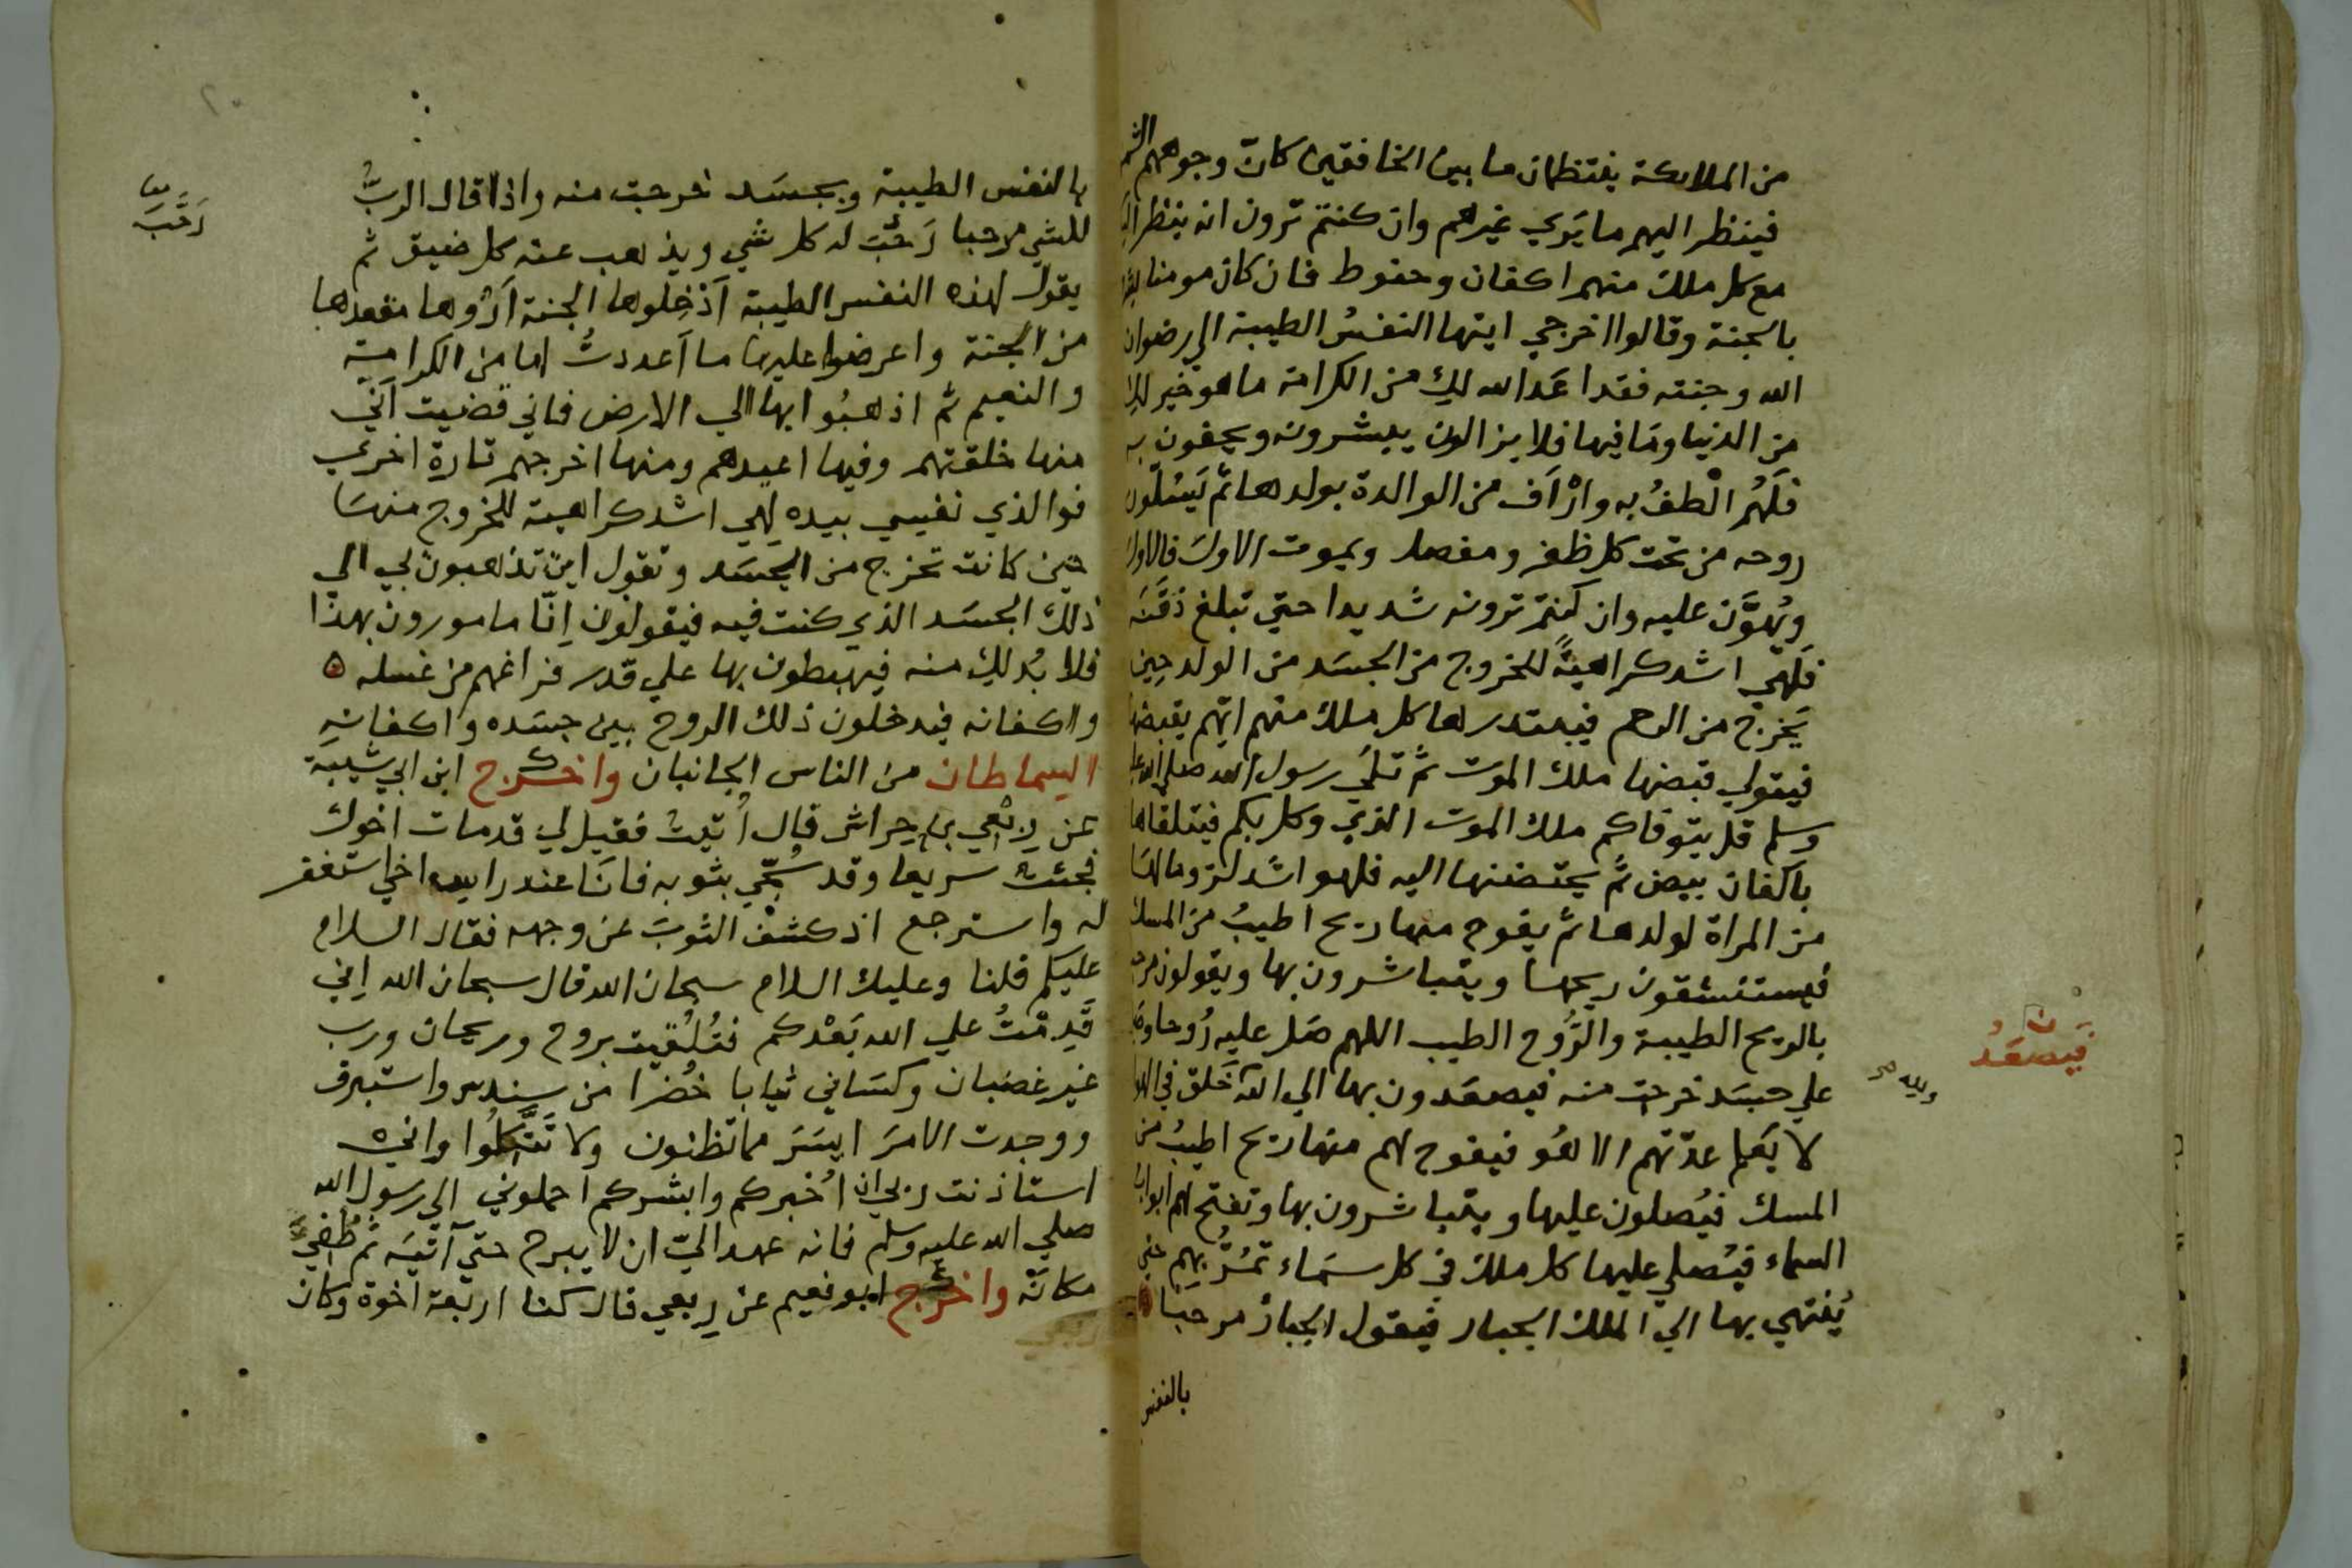 من الملايكة ينتظمان ما بين الخافقين كانّ وجوههم الشمس
فينظر اليهم ما يَري غيرهم وان كنتم ترون انه ينظر اليكم
مع كل ملك منهم اكفان وحنوط فان كان مومنا بشروه
بالجنة وقالوا اخرجي ايتها النفسُ الطيبة الي رضوان
الله وجنته فقد اعَد الله لكِ من الكرامة ما هو خير لكِ
من الدنيا ومَا فيها فلا يزالون يبشرونه ويحفون به
فلَهُم الْطفُ به وارْاَف من الوالدة بولدها ثم يَسُلّون
روحه من تحت كل ظفر ومفصل ويموت الاول فالاول
ويُهوَّن عليه وان كنتم ترونه شديدا حتي تبلغ ذقَنَه
فلَهِي اشد كراهيةً للخروج من الجسَد من الولد حِين
يَخرج من الرحم فيبتدرها كل ملك منهم ايّهم يقبضها
فيتولي قبضها ملك الموت ثُم تلَي رسول الله صلي الله عليه
وسلم قل يتوفاكم ملك الموت الذي وكل بكم فيتلقاها
باكفان بيض ثُم يحتضنها اليه فلهو اشَد لزوما لها
من المراة لولدها ثم يفوح منها ريح اطيبُ من المسك
فيستنشقون ريحها ويتباشرون بها ويقولون مرحبا
بالريح الطيبة والرُّوح الطيب اللهم صَل عليه رُوحا وصَل
علي جسَد خرجت منه فيصعَدون بها الي الله خَلق في الهوا
لا يَعلم عدّتهم الا هُو فيفوح لهم منها ريح اطيبُ من
المسك فيُصلون عليها ويتباشرون بها وتفتح لهم ابواب
السماء فيُصلي عليها كل ملك في كل سَماء تمُرُّ بِهِم حتي
يُنتهي بها الي الملك الجبار فيقول الجبارُ مرحبَا
بالنفس
ن
فيَصعَدُ
ولله
بالنفس الطيبة وبجسَد خرجت منه واذا قال الربُّ
للشي مرحبا رَحُبَ له كل شي ويذهب عنه كل ضيق ثم
يقول لهذه النفس الطيبة اَدْخِلوها الجنة اَرُوها مقعدها
من الجنة واعرضوا عليها ما اَعددتُ لها من الكرامة
والنعيم ثم اذهبُوا بها الي الارض فاني قضيت اَنّي
منها خلقتهم وفيها اعيدهم ومنها اخرجهم تارة اخري
فوالذي نفسي بيده لَهي اشد كراهية للخروج منهَا
حين كانت تخرج من الجسَد وتقول اين تذهبون بي الي
ذلك الجسَد الذي كنت فيه فيقولون اِنّا مامورون بهذا
فلا بُد لكِ منه فيهبطون بها علي قَدر فراغهم من غسله
واكفانه فيدخلون ذلك الروح بين جسَده واكفانهِ
السماطان من الناس الجانبان واخرج ابن ابي شيبة
عن رِبْعي بن حِراش قال اُتيتُ فقيل لي قد مات اخوك
فجئت سريعا وقد سُجّي بثوبه فانَا عند راس اخي استغفر
له واسترجع اذ كشف الثوبَ عن وجهه فقال السلام
عليكم قلنا وعليك السلام سبحان الله قال سبحان الله اِني
قَدِمْتُ علي الله بَعْدكم فتُلُقيت بروح وريحان ورب
غير غضبان وكسَاني ثيابا خُضرا من سندس واستبرق
ووجدت الامرَ ايسَرَ مما تظنون ولا تَتَّكِلُوا واني
استاذنت ربي ان اُخبركم وابشركم احملوني الي رسول الله
صلي الله عليه وسلم فانه عهد اليّ ان لا يبرح حتي آتيَه ثم طُفِيَ
مكانَه واخرج ابو نعيم عن رِبعي قال كنا اربعة اخوة وكان
رَحَّبَ